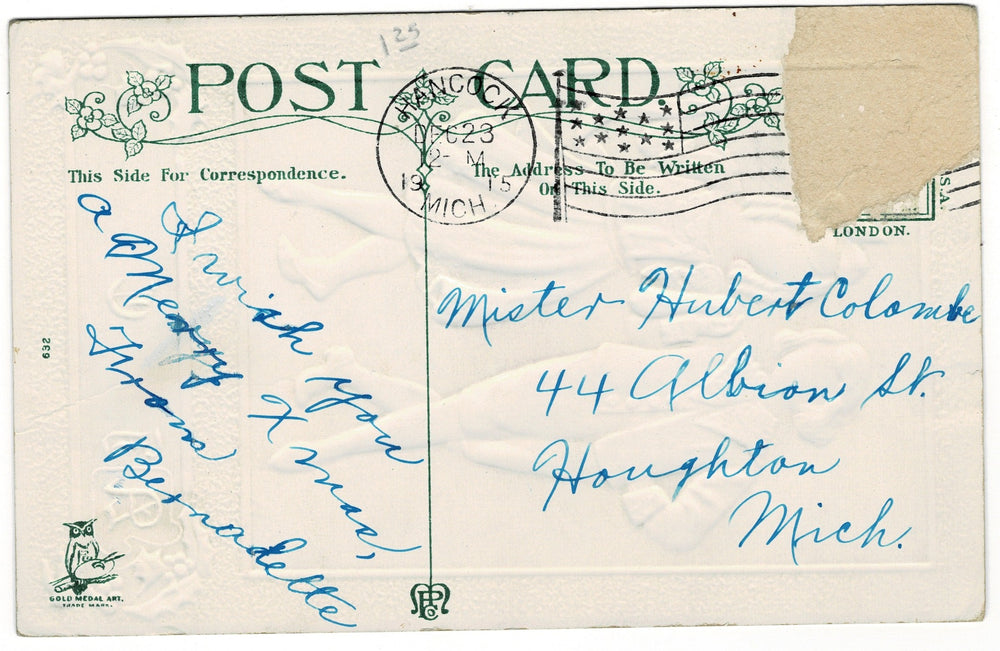 1 25
POST CARD
HANCOCK
DEC 23
2- M
19 15
MICH.
This Side For Correspondence.
The Address To Be Written
On This Side.
S.A.
LONDON.
I wish you
a Merry Xmas,
From
Bernadette
Mister Hubert Colombe
44 Albion St.
Houghton
Mich.
632
GOLD MEDAL ART.
TRADE MARK.